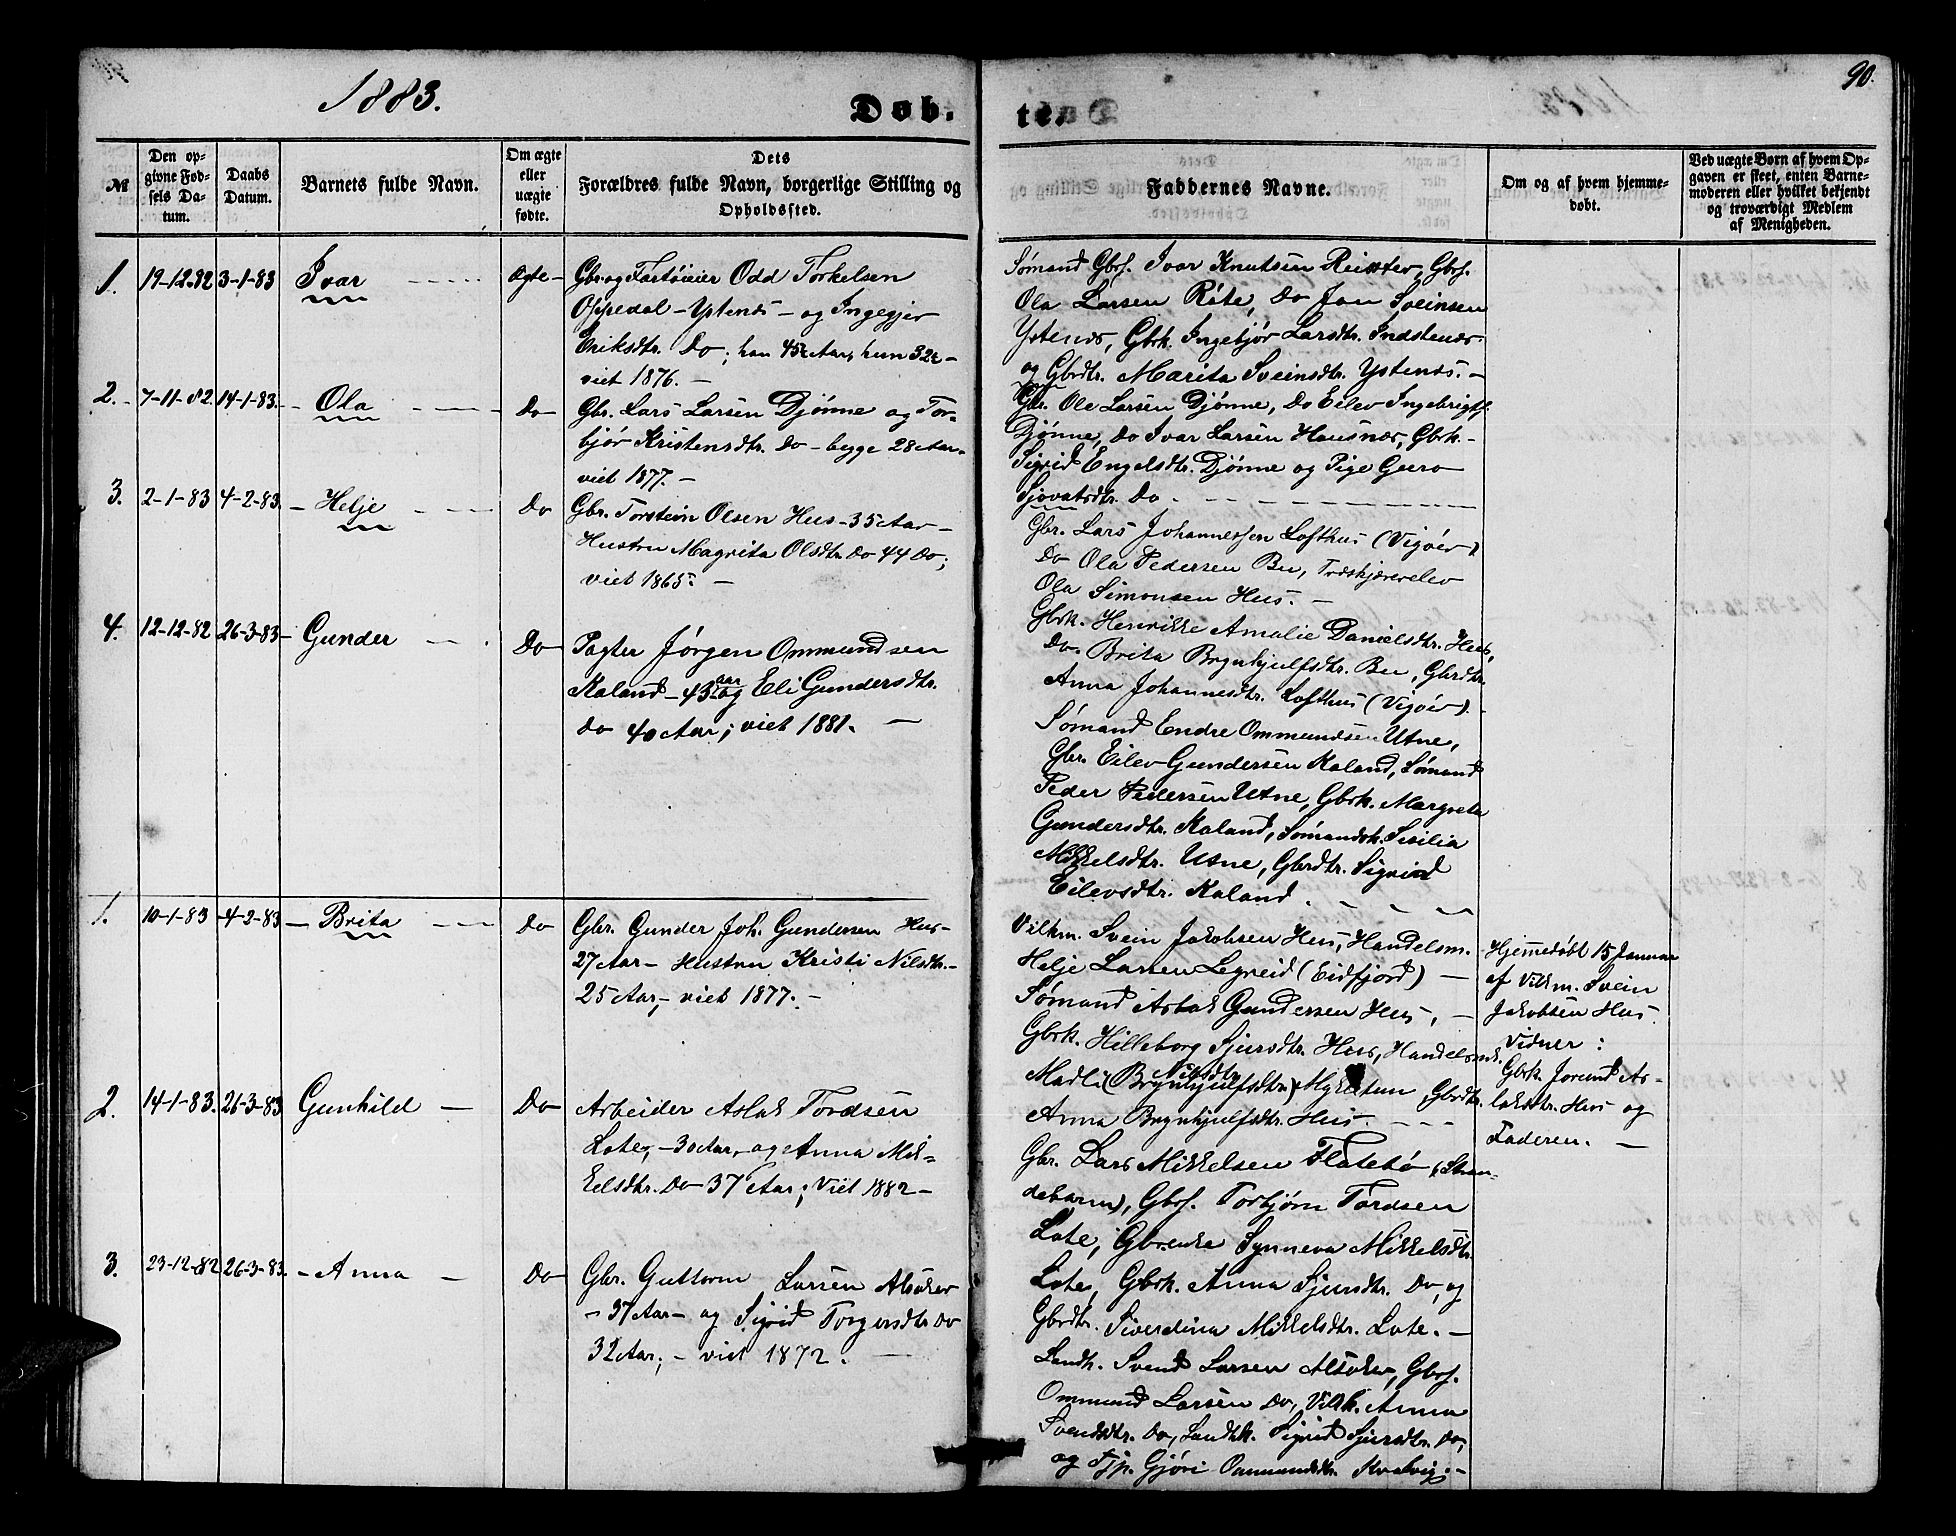 1883.
Døb.
te.
90.
№
Den op-
givne Fød-
sels Da-
tum.
Daabs
Datum.
Barnets fulde Navn.
Om ægte
eller
uægte
fødte.
Dets
Forældres fulde Navn, borgerlige Stilling og
Opholdssted.
Faddernes Navne.
Om og af hvem hjemme-
døbt.
Ved uægte Børn af hvem Op-
gaven er skeet, enten Barne-
moderen eller hvilket bekjendt
og troværdigt Medlem
af Menigheden.
1. 19-12-82 3-1-83 Ivar Ægte
Gbr. og Odd Torkelsen
Oppedal - Ystenes - og Ingegjer
Eriksdtr. Do; han 45 Aar, hun 32 -
viet 1876. -
Sømand Gbrs. Ivar Knutsen Reisæter, Gbrs.
Ola Larsen Røte, Do Jon Sveinsen
Ystenes, Gbrk. Ingebjør Larsdtr. Indstenes
og Gbrdtr. Marita Sveinsdtr. Ystenes. -
2. 7-11-82. 14-1-83. - Ola - Do
Gbr. Lars Larsen Djønne og Tor-
bjør Kristensdtr. Do - begge 28 Aar -
viet 1877. -
Gbr. Ole Larsen Djønne, Do Eilev Ingebrigts.
Djønne, Do Ivar Larsen Hausnes, Gbrk.
Sigrid Engelsdtr. Djønne og Pige Guro
Sjovatsdtr. Do.
3. 2-1-83 4-2-83. - Helje - Do
Gbr. Torstein Olsen Hus - 35 Aar -
Hustru Magrita Olsdtr. Do 44 Do;
viet 1865. -
Gbr. Lars Johannessen Lofthus (Vigøer)
Do Ola Pedersen Bu, Træskjærerelev
Ola Simonsen Hus. -
Gbrk. Henrikke Amalie Danielsdtr. Hus,
Do. Brita Brynhjulfsdtr. Bu, Gbrdtr.
Anna Johannesdtr. Lofthus (Vigøer). -
4. 12-12-82 26-3-83 - Gunder - Do
Pagter Jørgen Ommundsen
Raland - 43 aar og Eli Gundersdtr.
Do 40 Aar; viet 1881. -
Sømand Endre Ommundsen Utne,
Gbr. Eilev Gundersen Raland, Sømand
Peder Pedersen Utne, Gbrk. Margreta
Gundersdtr. Raland, Sømandsk. Sisilia
Mikkelsdtr. Utne, Gbrdtr. Sigrid
Eilevsdtr. Raland.
1. 10-1-83 4-2-83 - Brita - Do
Gbr. Gunder Joh. Gundersen Hus -
27 Aar - Hustru Kristi Nilsdtr. -
25 Aar, - viet 1877. -
Vilkm. Svein Jakobsen Hus, Handelsm.
Helje Larsen Legreid (Eidfjord) -
Sømand Aslak Gundersen Hus, -
Gbrk. Hilleborg Sjursdtr. Hus, Handelsmk.
Nilsdtr
Madli (Brynhjulfsdtr.) Mykletun, Gbrdtr.
Anna Brynhjulfsdtr. Hus. -
Hjemmedøbt 15 Januar
af Vilkm. Svein
Jakobsen Hus.
Vidner:
Gbrk. Jorund As-
laksdtr. Hus og
Faderen. -
2. 14-1-83. 26-3-83 Gunhild - Do
Arbeider Aslak Tordsen
Lote, - 30 Aar, og Anna Mik-
kelsdtr. Do 37 Aar; Viet 1882 -
Gbr. Lars Mikkelsen Flatebø (Stran-
debarm), Gbrs. Torbjørn Tordsen
Lote, Gbrenke Synneva Mikkelsdtr.
Lote, Gbrk. Anna Sjursdtr. Do, og
Gbrdtr. Siverdina Mikkelsdtr. Lote. -
3. 23-12-82 26-3-83. - Anna - Do
Gbr. Guttorm Larsen Alsaker
- 37 Aar - og Sigrid Torgersdtr Do
32 Aar; - viet 1872. -
Landh. Svend Larsen Alsaker, Gbrs.
Ommund Larsen Do, Vilk. Anna
Svendsdtr. Do, Landhk. Sigrid Sjursdtr. Do,
og Tjp. Gjøri Ommundsdtr. Kvalvig. -